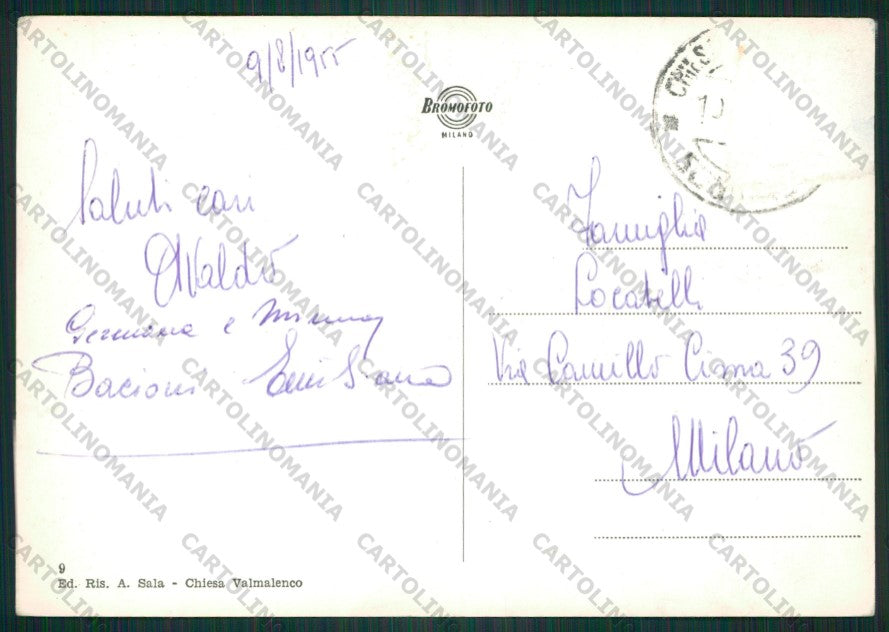 9/8/1955
BROMOFOTO
MILANO
CHIES
10
Saluti cari
Osvaldo
Germana e
Bacioni Emiliana
Famiglia
Locatelli
Via Camillo Cima 39
Milano
9
Ed. Ris. A. Sala - Chiesa Valmalenco
CARTOLINOMANIA